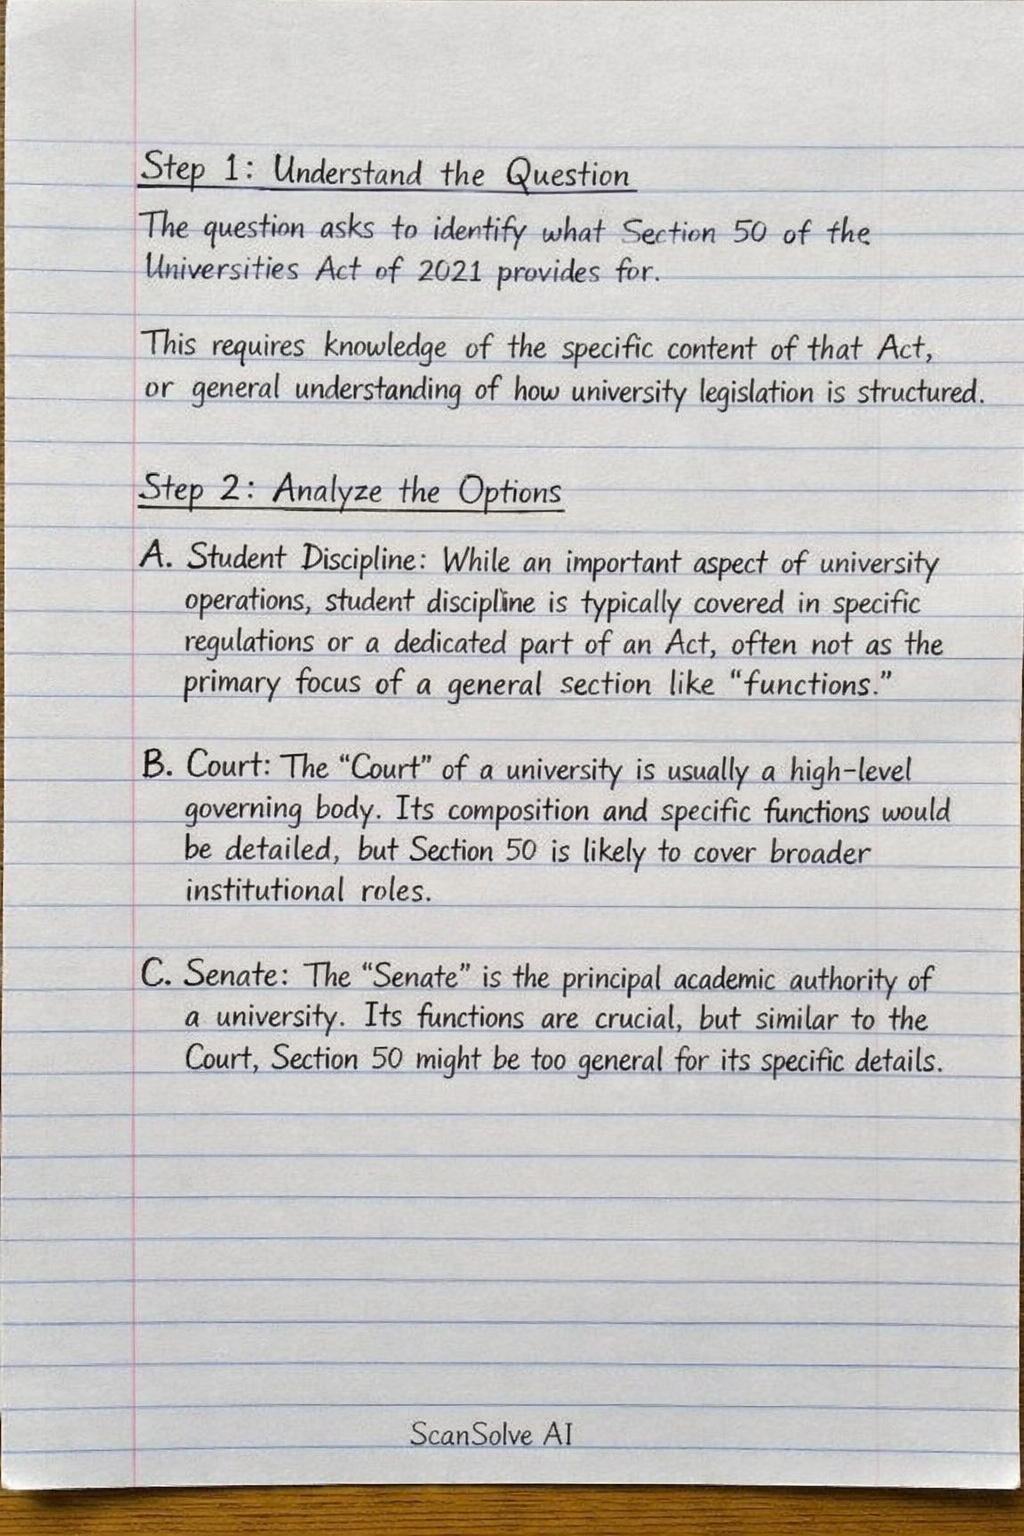 Step 1: Understand the Question
The question asks to identify what Section 50 of the
Universities Act of 2021 provides for.
This requires knowledge of the specific content of that Act,
or general understanding of how university legislation is structured.
Step 2: Analyze the Options
A. Student Discipline: While an important aspect of university
operations, student discipline is typically covered in specific
regulations or a dedicated part of an Act, often not as the
primary focus of a general section like “functions.”
B. Court: The “Court” of a university is usually a high-level
governing body. Its composition and specific functions would
be detailed, but Section 50 is likely to cover broader
institutional roles.
C. Senate: The “Senate” is the principal academic authority of
a university. Its functions are crucial, but similar to the
Court, Section 50 might be too general for its specific details.
ScanSolve AI